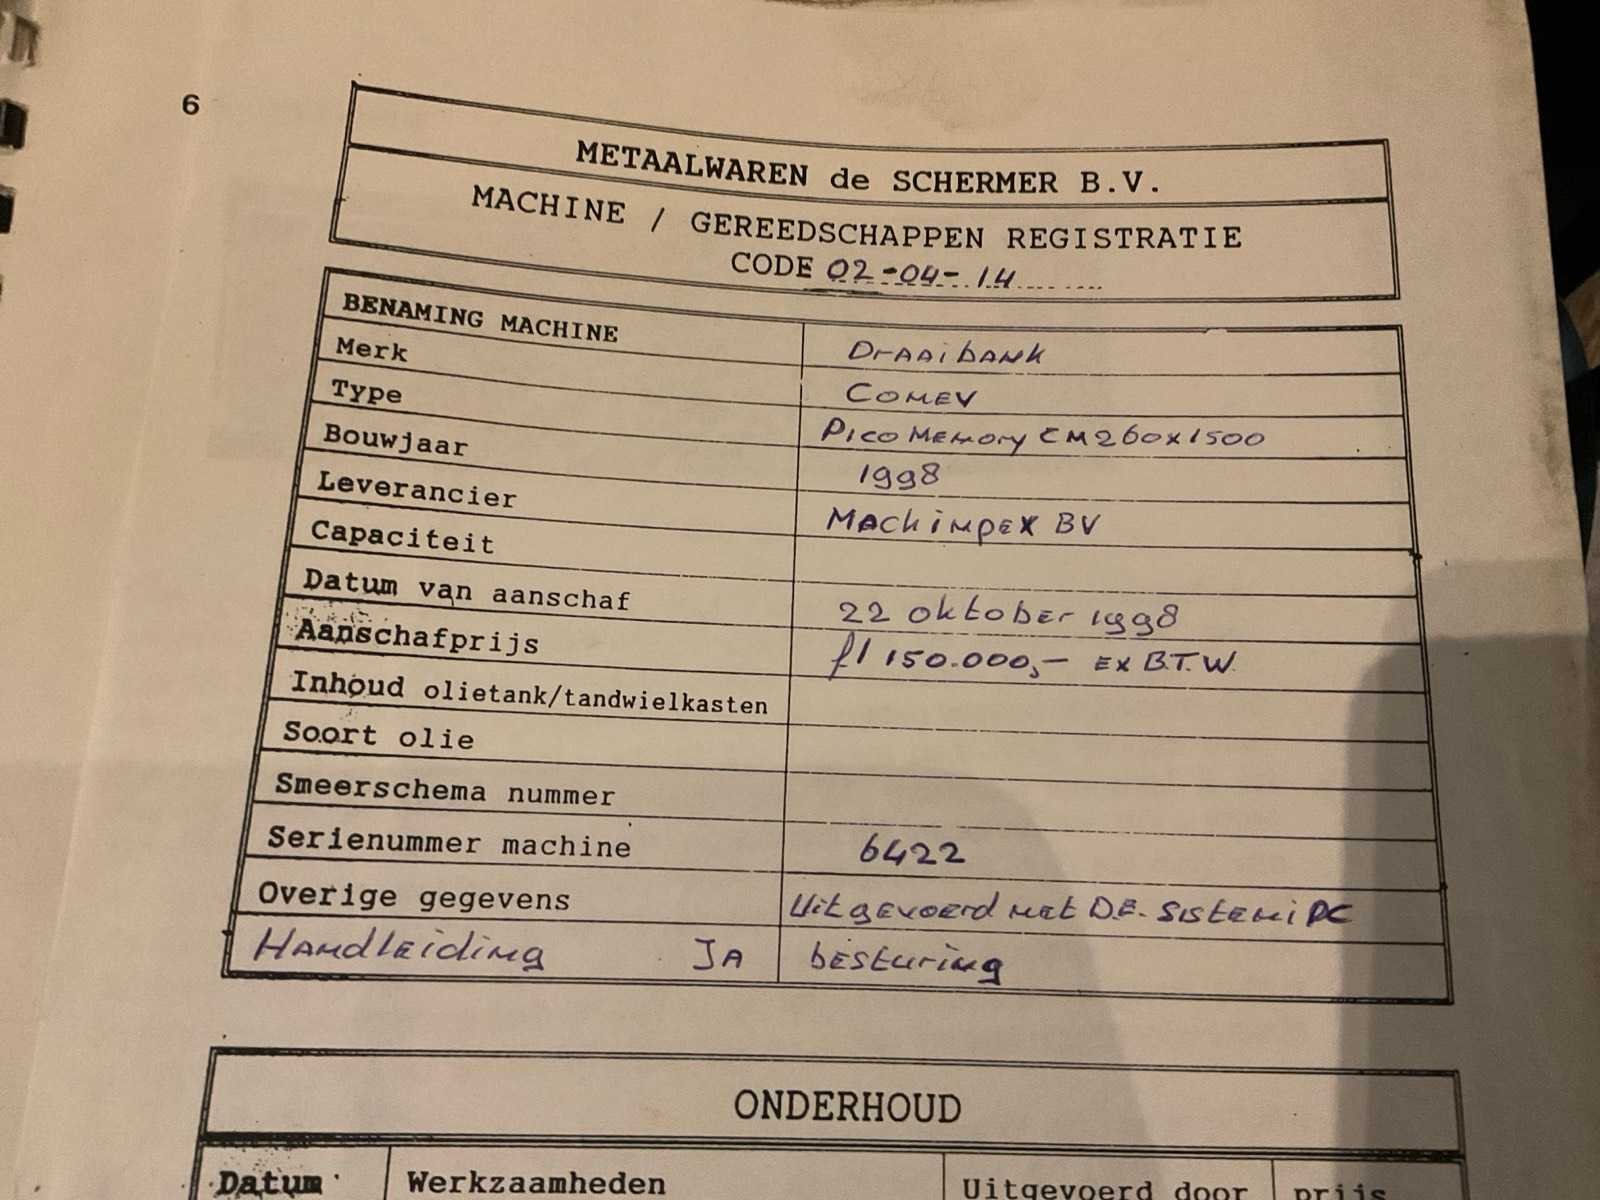 6
METAALWAREN de SCHERMER B.V.
MACHINE / GEREEDSCHAPPEN REGISTRATIE
CODE 02-04-14
BENAMING MACHINE Draaibank
Merk COMEV
Type Pico Memory CM260x1500
Bouwjaar 1998
Leverancier Machimpex BV
Capaciteit
Datum van aanschaf 22 oktober 1998
Aanschafprijs fl 150.000,- ex B.T.W.
Inhoud olietank/tandwielkasten
Soort olie
Smeerschema nummer
Serienummer machine 6422
Overige gegevens Uitgevoerd met D.E. Sistemi PC
Handleiding JA besturing
ONDERHOUD
Datum Werkzaamheden Uitgevoerd door prijs